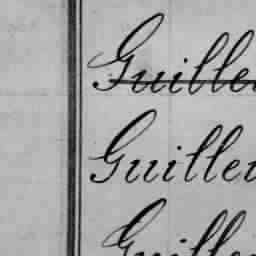 Guille
Guille
Guille